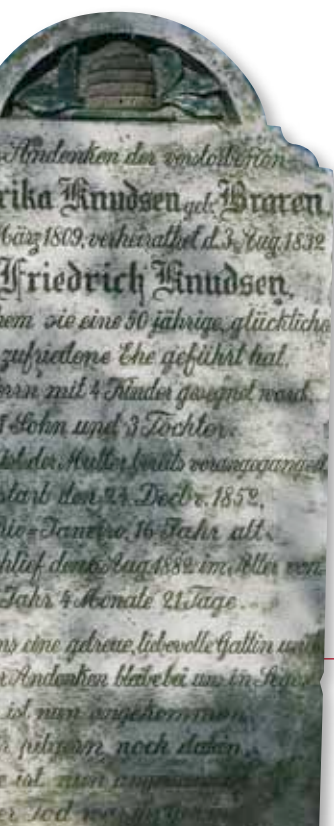 Andenken der verstorbenen
rika Knudsen geb. Braren
März 1809, verheirathet d. 3. Aug. 1832
Friedrich Knudsen,
hem sie eine 50 jährige, glückliche
zufriedene Ehe geführt hat.
errn mit 4 Kinder gesegnet ward,
1 Sohn und 3 Töchter.
ist der Mutter bereits vorangegangen
starb den 24. Decbr. 1852,
Rio-Janeiro, 16 Jahr alt.
hlief den Aug. 1882 im Alter von
Jahr 4 Monate 21 Tage.
ns eine getreue, liebevolle Gattin und
r Andenken bleibe bei uns in Segen
ist nun angekommen
r pilgern noch dahin,
e ist nun
er Tod war